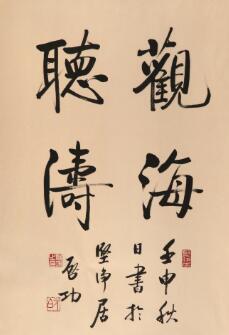 觀海
聽濤
壬申秋
日書於
堅净居
啟功